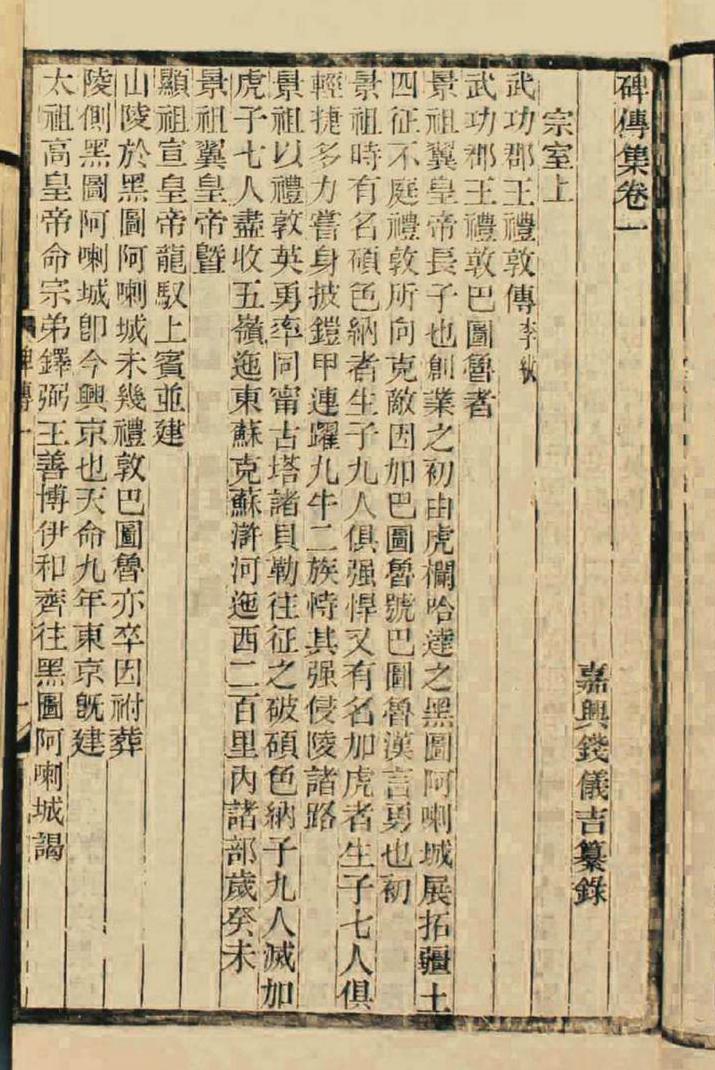 碑傳集卷一
嘉興錢儀吉纂錄
宗室上
武功郡王禮敦傳 李紱
武功郡王禮敦巴圖魯者
景祖翼皇帝長子也創業之初由虎欄哈達之黑圖阿喇城展拓疆土
四征不庭禮敦所向克敵因加巴圖魯號巴圖魯漢言勇也初
景祖時有名碩色納者生子九人俱强悍又有名加虎者生子七人俱
輕捷多力嘗身披鎧甲連躍九牛二族恃其强侵陵諸路
景祖以禮敦英勇率同甯古塔諸貝勒往征之破碩色納子九人滅加
虎子七人盡收五嶺迤東蘇克蘇滸河迤西二百里內諸部歲癸未
景祖翼皇帝曁
顯祖宣皇帝龍馭上賓並建
山陵於黑圖阿喇城未幾禮敦巴圖魯亦卒因祔葬
陵側黑圖阿喇城卽今興京也天命九年東京旣建
太祖高皇帝命宗弟鐸弼王善博伊和齊往黑圖阿喇城謁